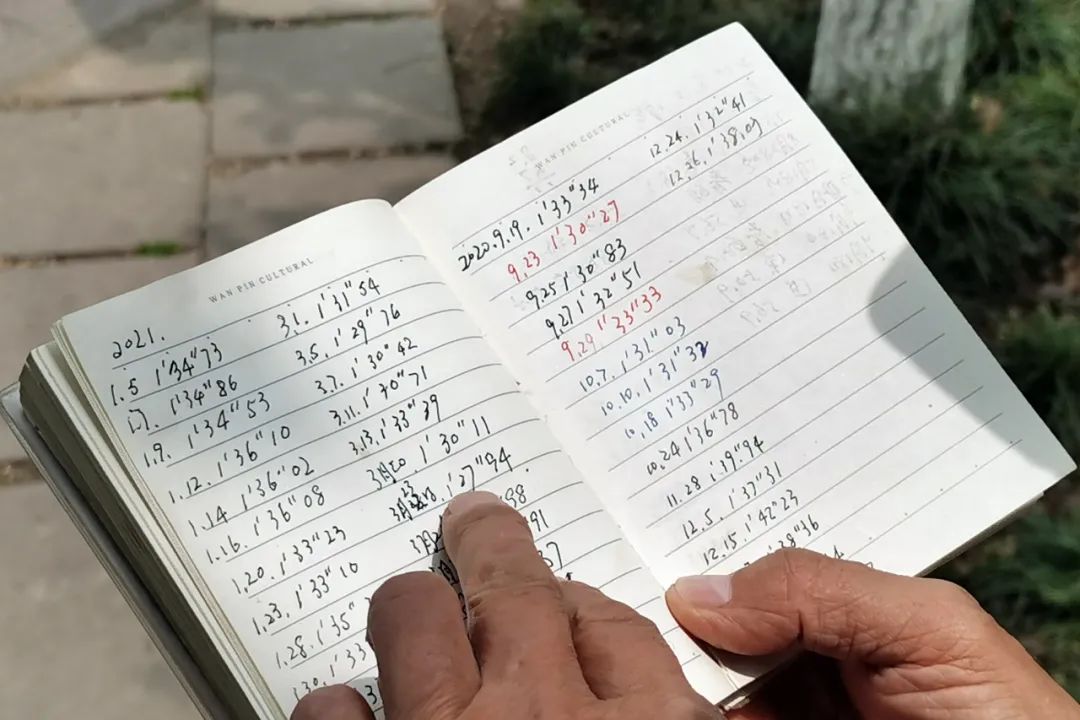 WAN PIN CULTURAL
2021.
1.5 1'34"73
1.7. 1'34"86
1.9. 1'34"53
1.12. 1'36"10
1.14 1'36"02
1.16. 1'36"08
1.20. 1'33"23
1.23. 1'33"10
1.28. 1'35"
1.30. 1'33
3.1. 1'31"54
3.5. 1'29"76
3.7. 1'30"42
3.11. 1'30"71
3.13. 1'33"39
3月20. 1'30"11
1'27"94
"88
91
37
WAN PIN CULTURAL
2020.9.9. 1'33"34
9.23 1'30"27
9.25 1'30"83
9.27 1'32"51
9.29. 1'33"33
10.7. 1'31"03
10.10. 1'31"32
10.18 1'33"29
10.24 1'36"78
11.28 1'39"94
12.5. 1'37"31
12.15. 1'42"23
12.24. 1'32"41
12.26. 1'38.09